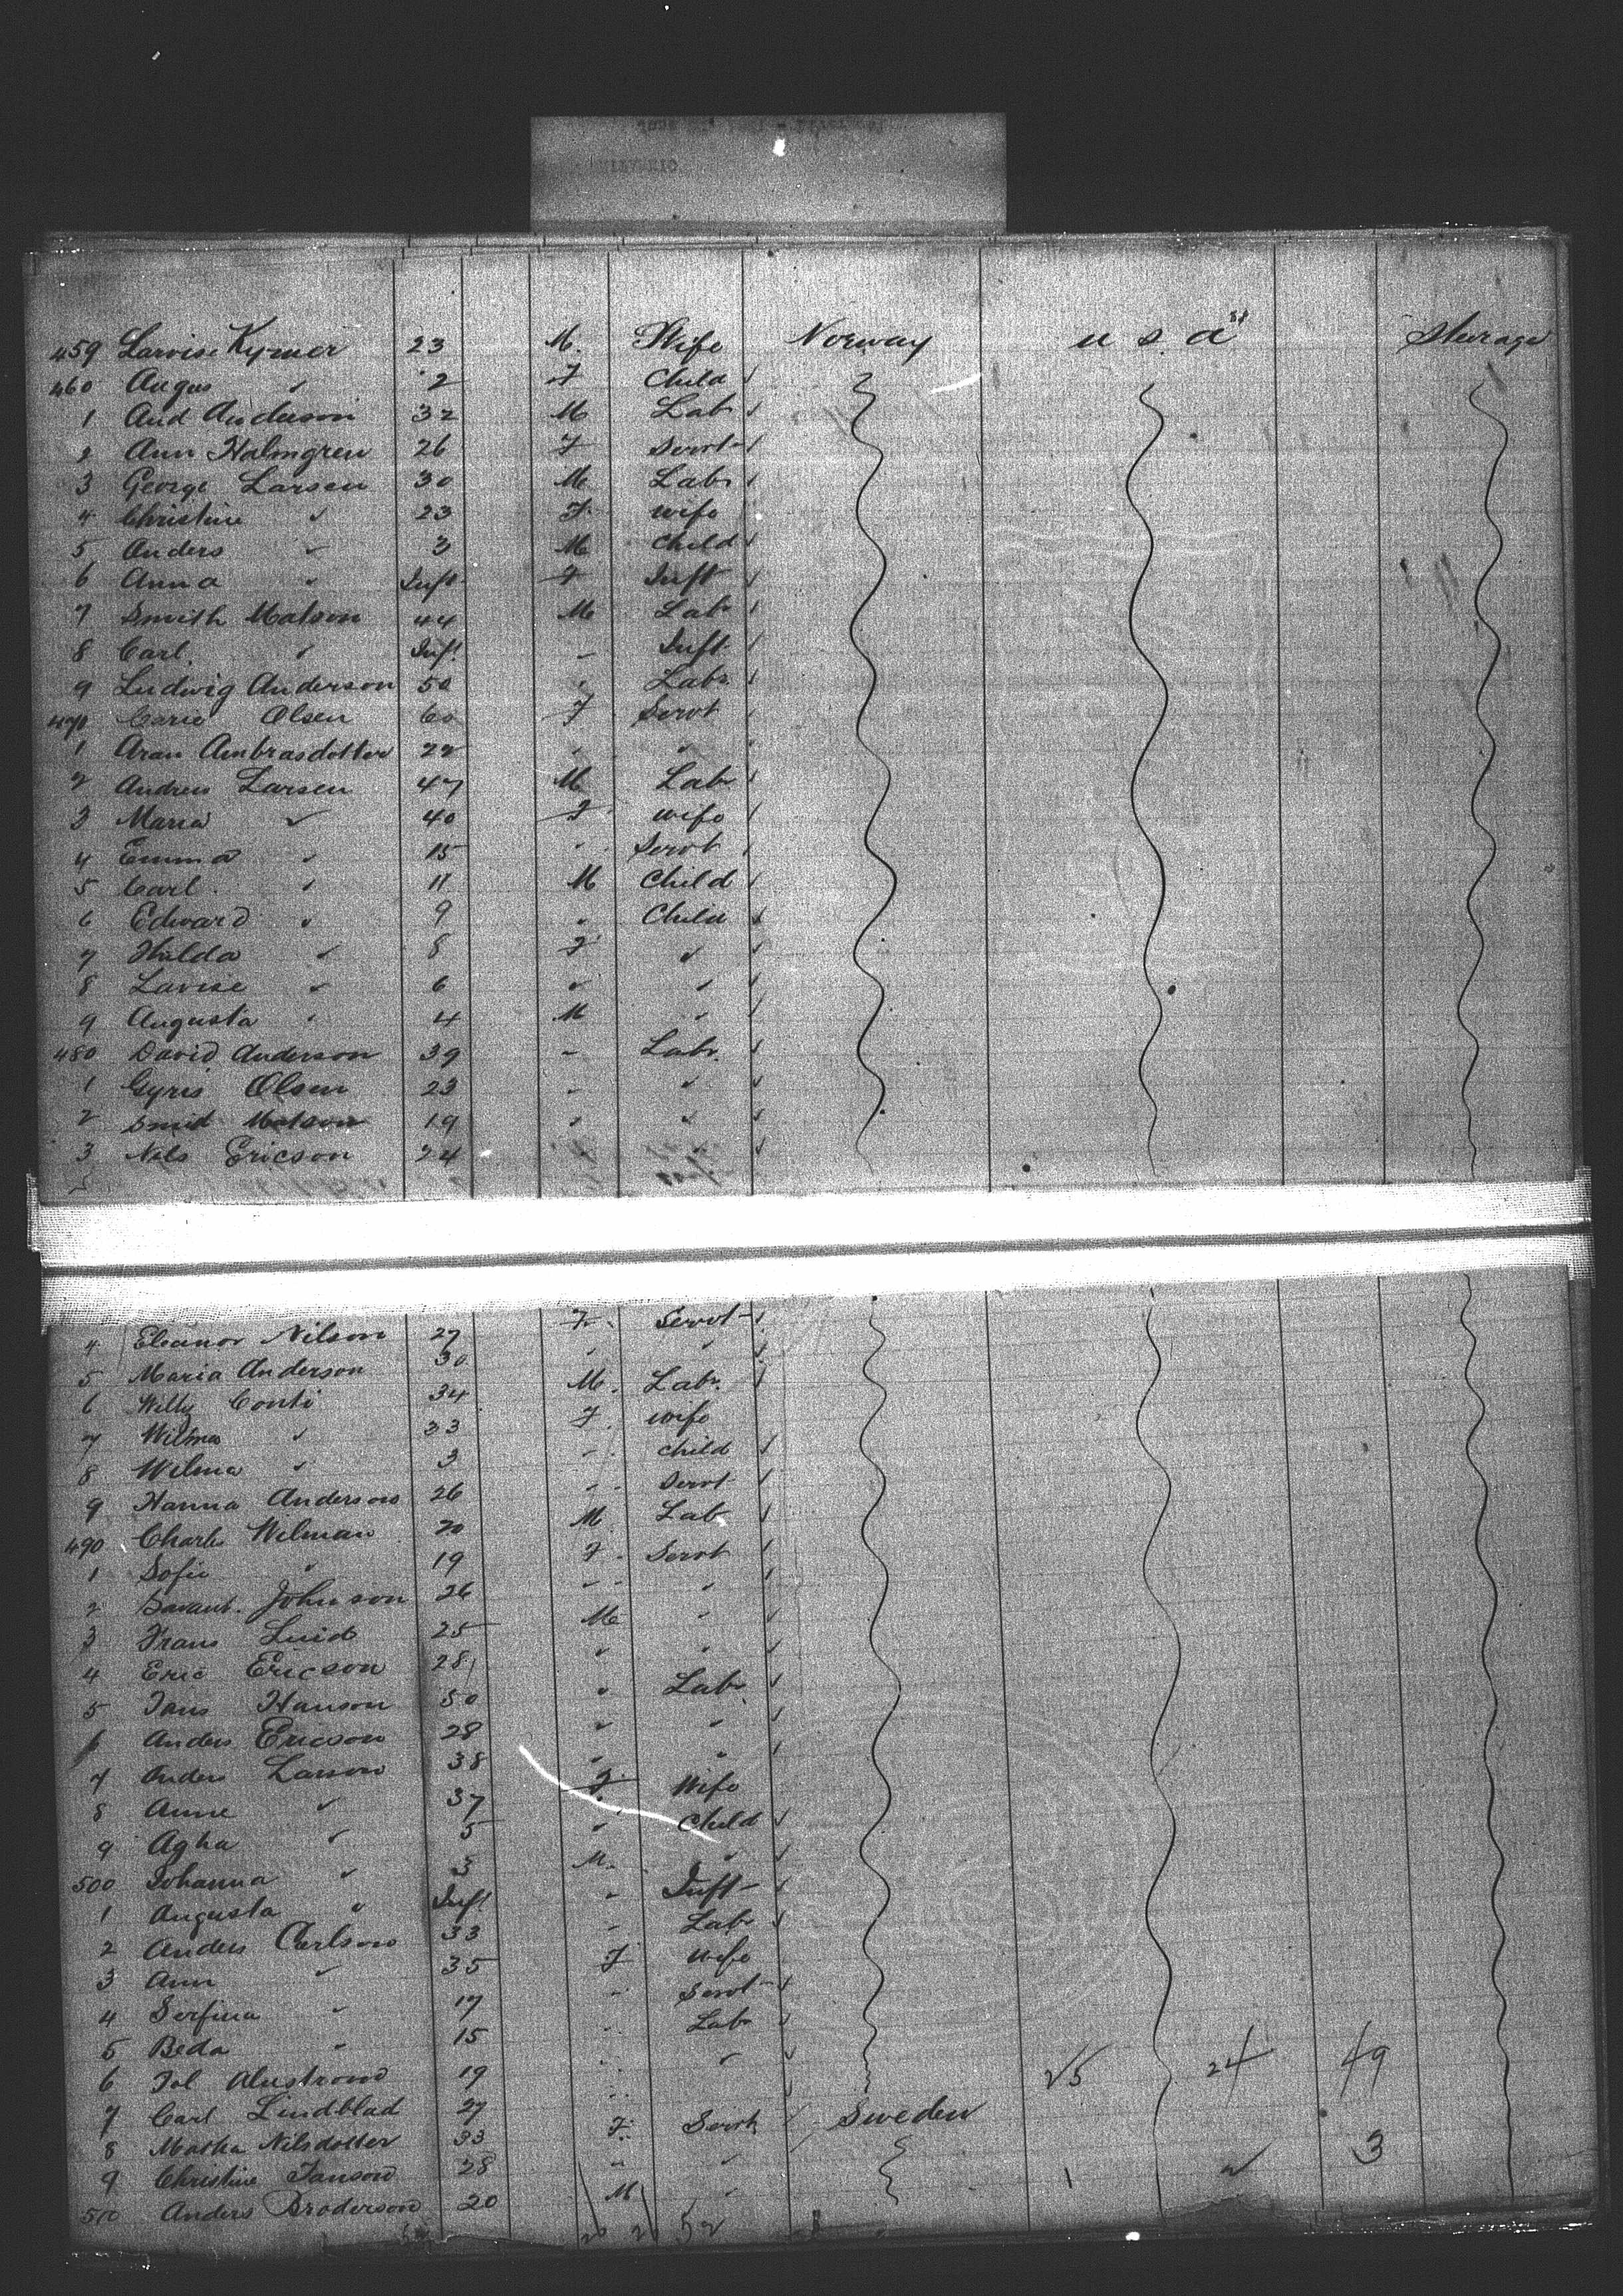 459 Lavise Kymer 23 M. Wife Norway U S A Steerage
460 Augus " 2 F Child
1 And Anderson 32 M Labr
2 Ann Halmgren 26 F Servt
3 George Larsen 30 M Labr
4 Christine " 23 F. wife
5 Anders " 3 M Child
6 Anna " Inft F Inft
7 Smith Matson 44 M Labr
8 Carl. " Inft " Inft
9 Ludwig Anderson 50 " Labr
470 Carie Olsen 60 F Servt
1 Aran Ambrasdotter 22 " "
2 Andrew Larsen 47 M Labr
3 Maria " 40 F wife
4 Emma " 15 " Servt
5 Carl " 11 M Child
6 Edward " 9 " Child
7 Hilda " 8 F "
8 Lavise " 6 " "
9 Augusta " 4 M "
480 David Anderson 39 " Labr.
1 Gyris Olsen 23 " "
2 Smid Matson 19 " "
3 Nels Ericson 24 " "
4 Eleanor Nilson 27 F. Servt
5 Maria Anderson 30 " "
6 Willy Conti 34 M. Labr.
7 Wilma " 33 F. wife
8 Wilma " 3 " child
9 Hanna Anderson 26 " Servt
490 Charles Wilman 20 M Labr
1 Sofie " 19 F. Servt
2 Johnson 26 " "
3 Frans 25 M "
4 Eric Ericson 28 " "
5 Jans Hanson 50 " Labr
6 Anders Ericson 28 " "
7 Anders Larson 38 " "
8 Anne " 37 F. Wife
9 Agha " 5 " Child
500 Johanna " 3 M. "
1 Augusta " Inft " Inft
2 Anders Carlson 33 " Labr
3 Ann " 35 F wife
4 Serfina " 17 " Servt
5 Beda " 15 " Labr
6 19 " " 25 24 49
7 Carl Lindblad 27 "
8 Matha Nilsdotter 33 F. Servt Sweden
9 Christine Janson 28 " " 1 3
510 Anders Broderson 20 M "
52